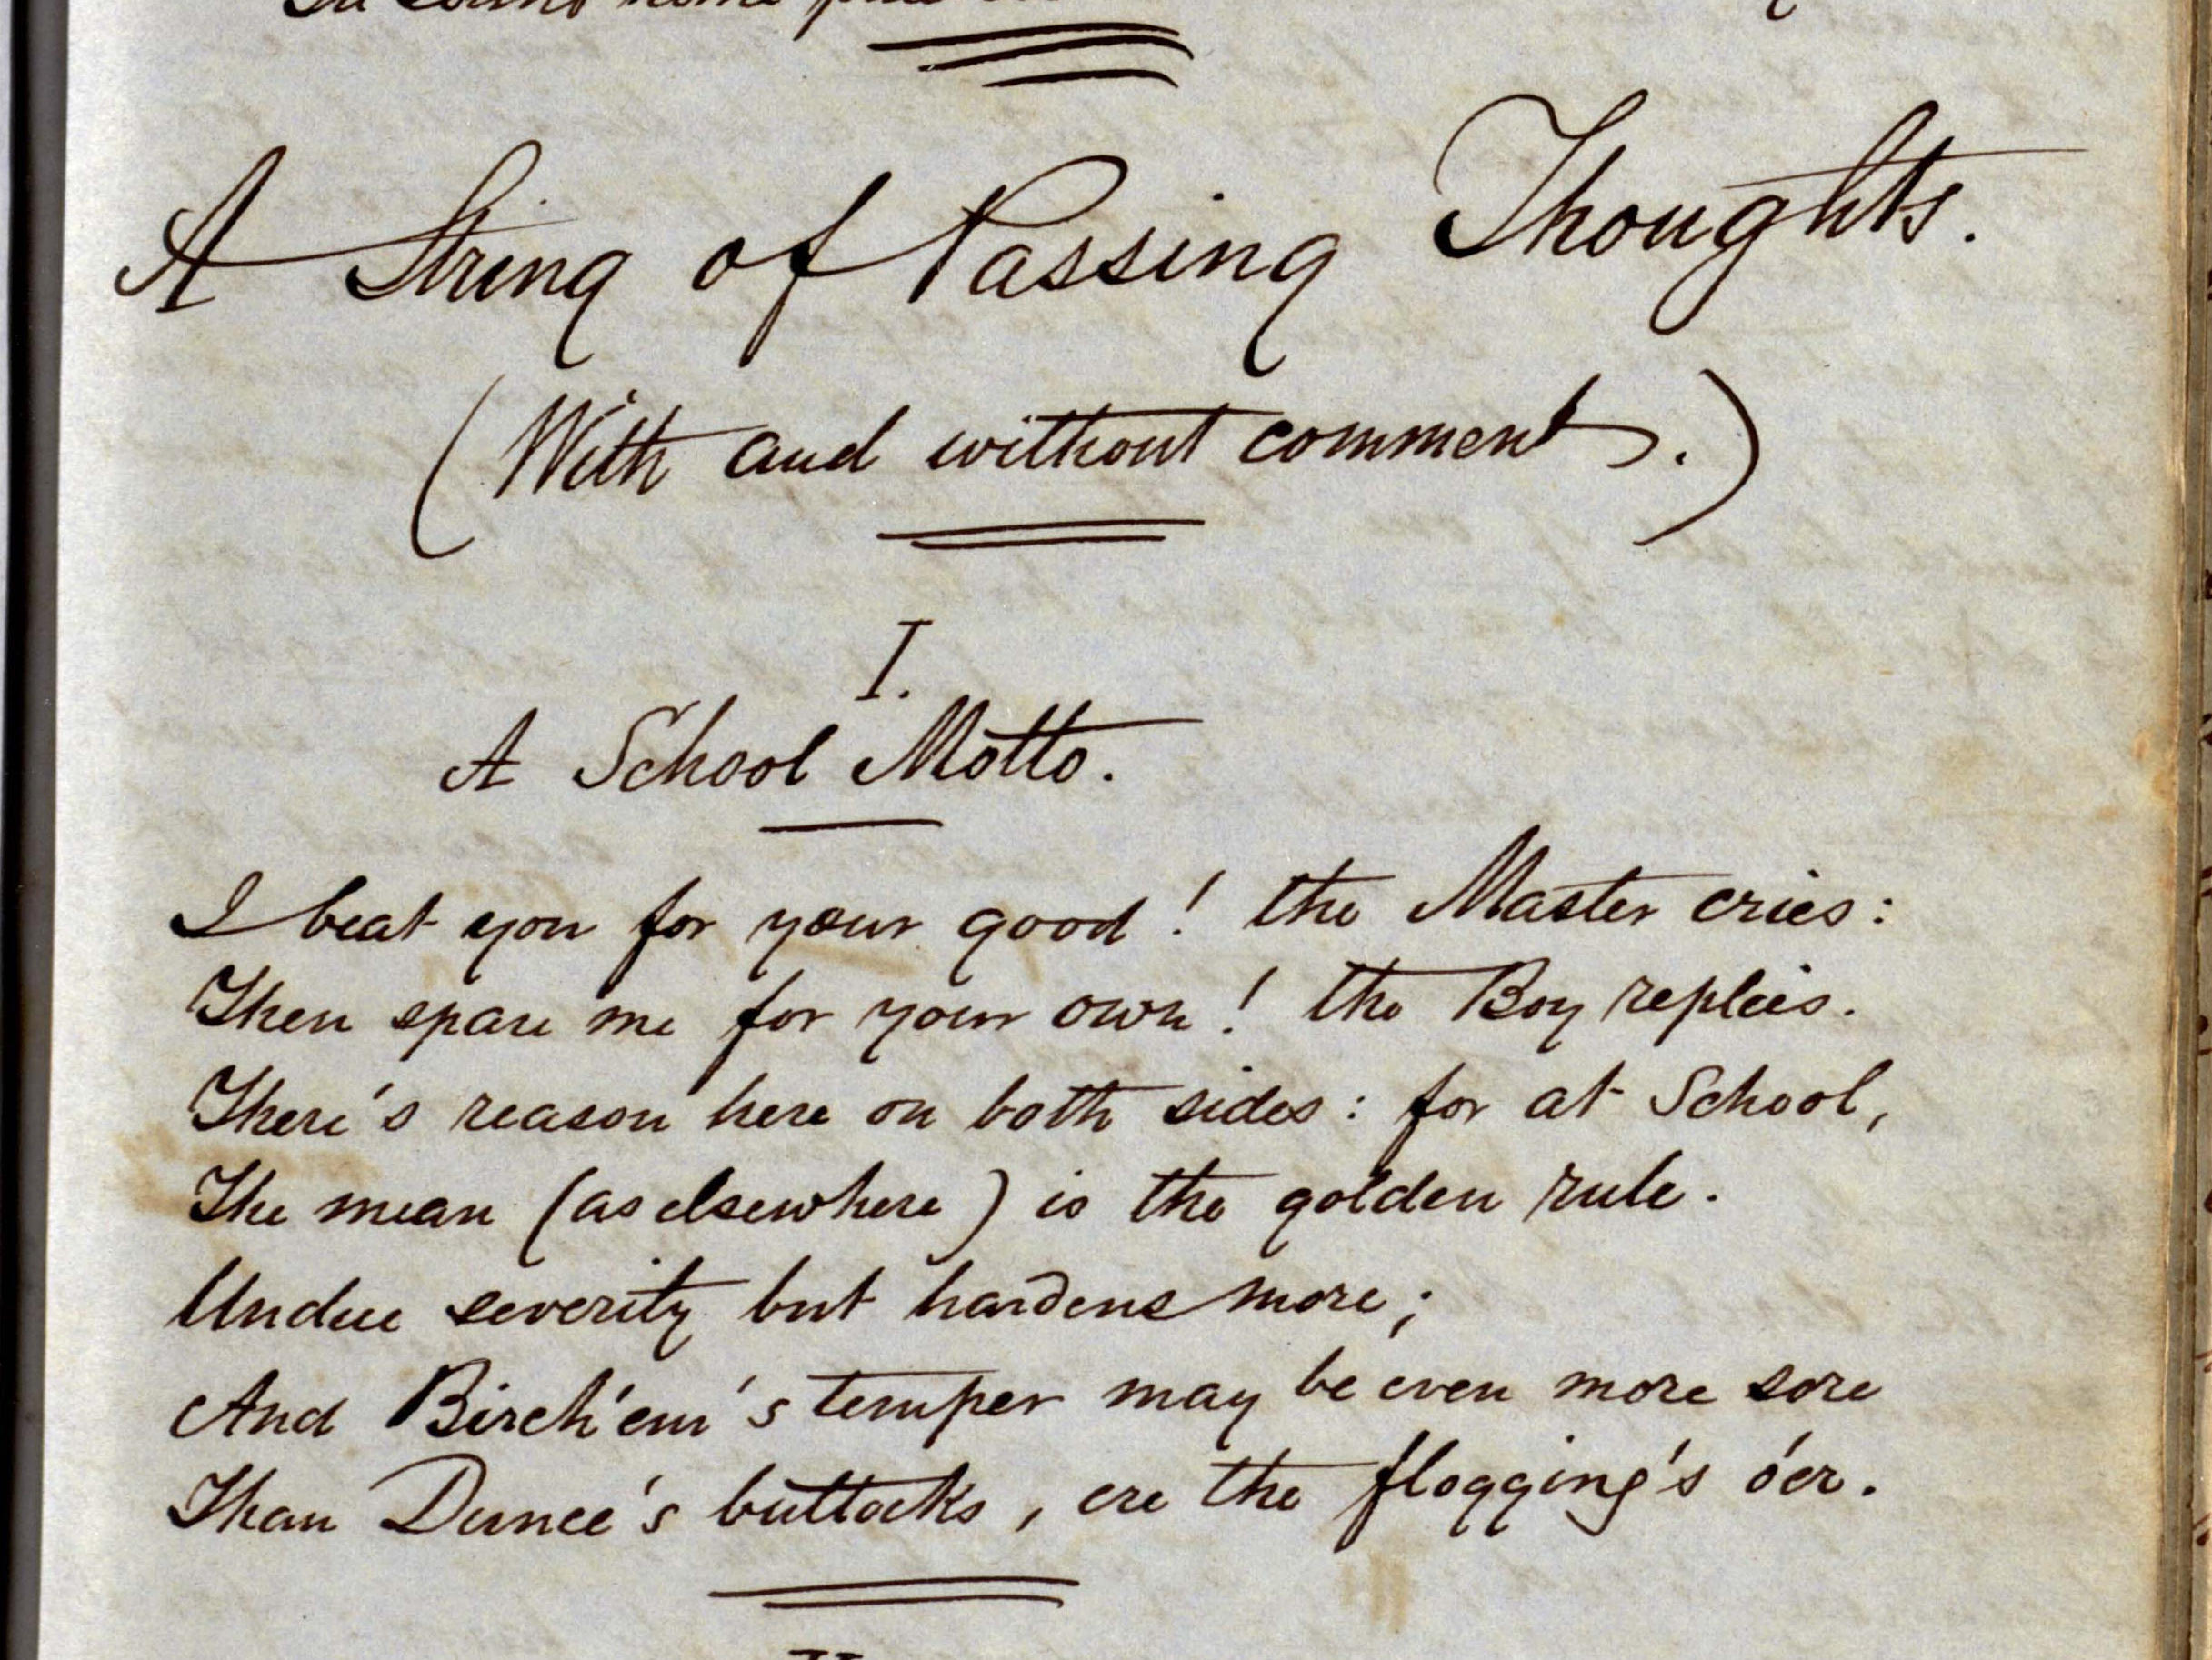 A String of Passing Thoughts.
(With and without comment.)
I.
A School Motto.
I beat you for your good! the Master cries:
Then spare me for your own! the Boy replies.
There's reason here on both sides: for at School,
The mean (as elsewhere) is the golden rule.
Undue severity but hardens more;
And Birch'em's temper may be even more sore
Than Dunce's buttocks, ere the flogging's o'er.